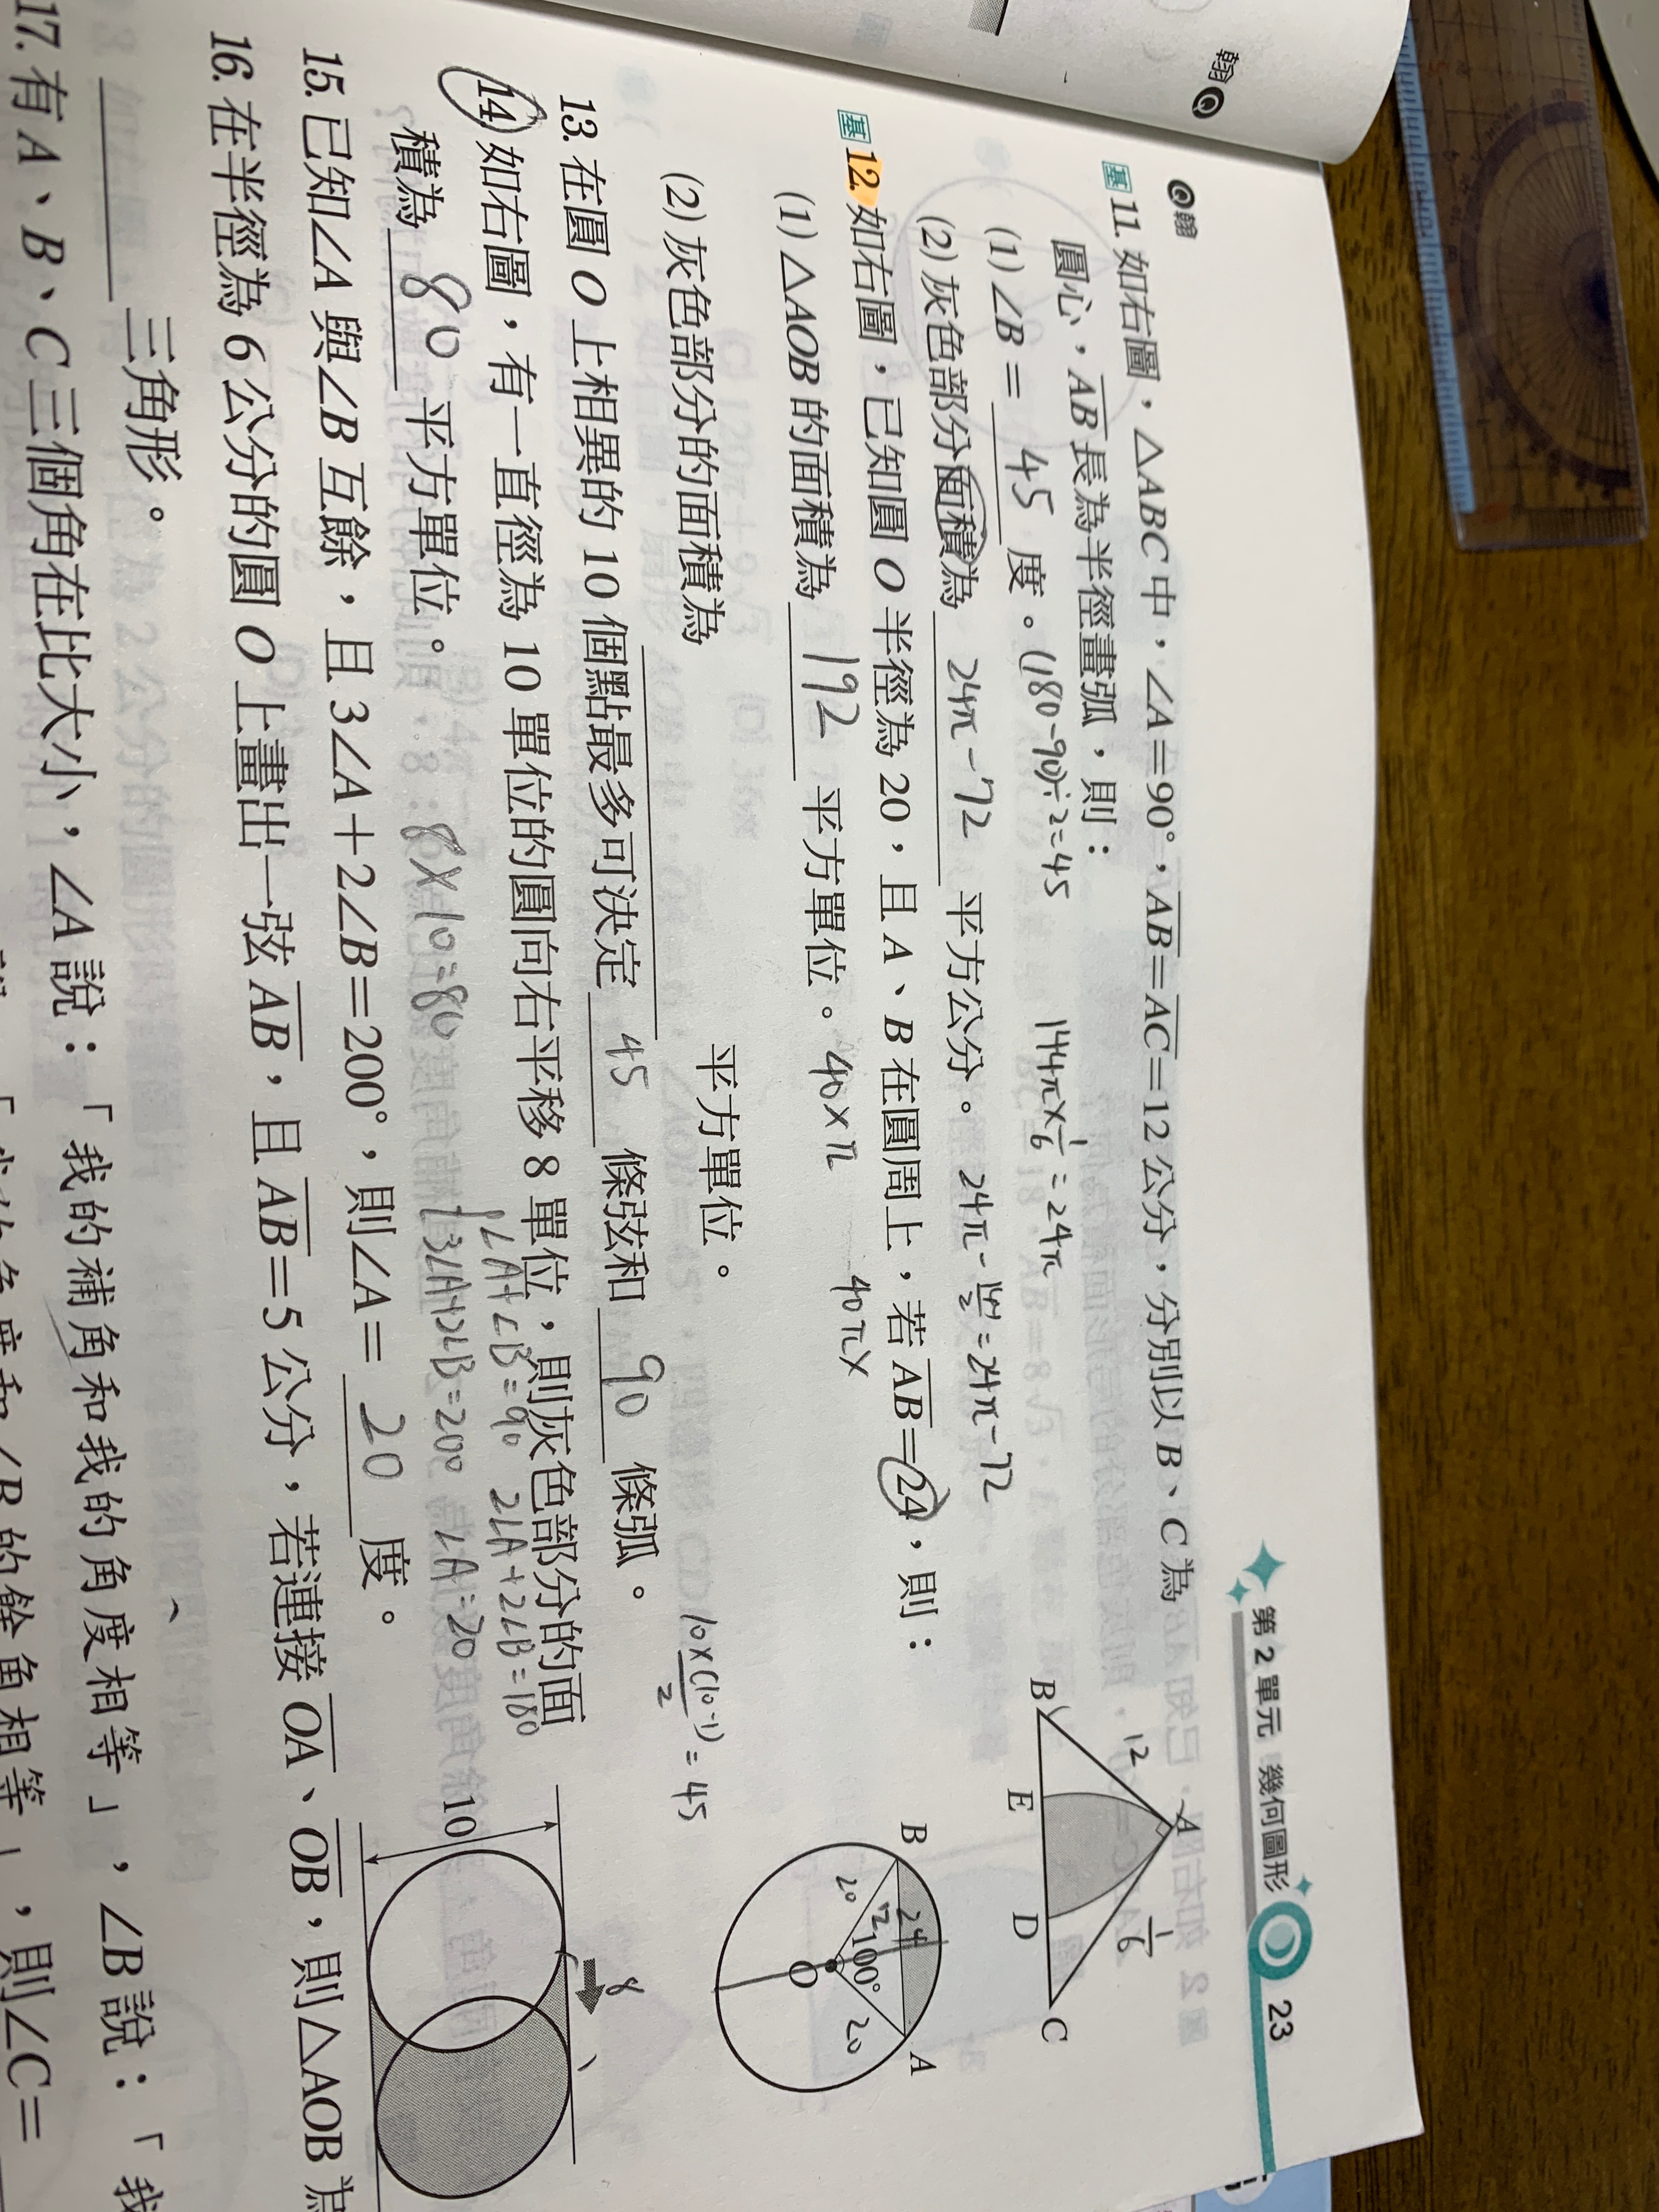 翰Q
Q翰
第 2 單元 幾何圖形 23
基 11. 如右圖，△ABC 中，∠A＝90°，AB＝AC＝12 公分，分別以 B、C 為
圓心，AB 長為半徑畫弧，則：
(1) ∠B＝ 45 度。(180-90)÷2=45
144π×1/6=24π
(2) 灰色部分面積為 24π-72 平方公分。 24π-144/2=24π-72
A
12
1/6
B E D C
基 12. 如右圖，已知圓 O 半徑為 20，且 A、B 在圓周上，若 AB＝24，則：
(1) △AOB 的面積為 192 平方單位。 40×π
40π×
(2) 灰色部分的面積為 平方單位。
B A
24
20 12 100° 20
O
13. 在圓 O 上相異的 10 個點最多可決定 45 條弦和 90 條弧。
10×(10-1)/2=45
14. 如右圖，有一直徑為 10 單位的圓向右平移 8 單位，則灰色部分的面
積為 80 平方單位。 8×10=80
8
10
15. 已知∠A 與∠B 互餘，且 3∠A＋2∠B＝200°，則∠A＝ 20 度。
∠A+∠B=90 2∠A+2∠B=180
3∠A+2∠B=200 ∠A=20
16. 在半徑為 6 公分的圓 O 上畫出一弦 AB，且 AB＝5 公分，若連接 OA、OB，則△AOB 為
三角形。
17. 有 A、B、C 三個角在比大小，∠A 說：「我的補角和我的角度相等」，∠B 說：「我
的餘角相等」，則∠C＝